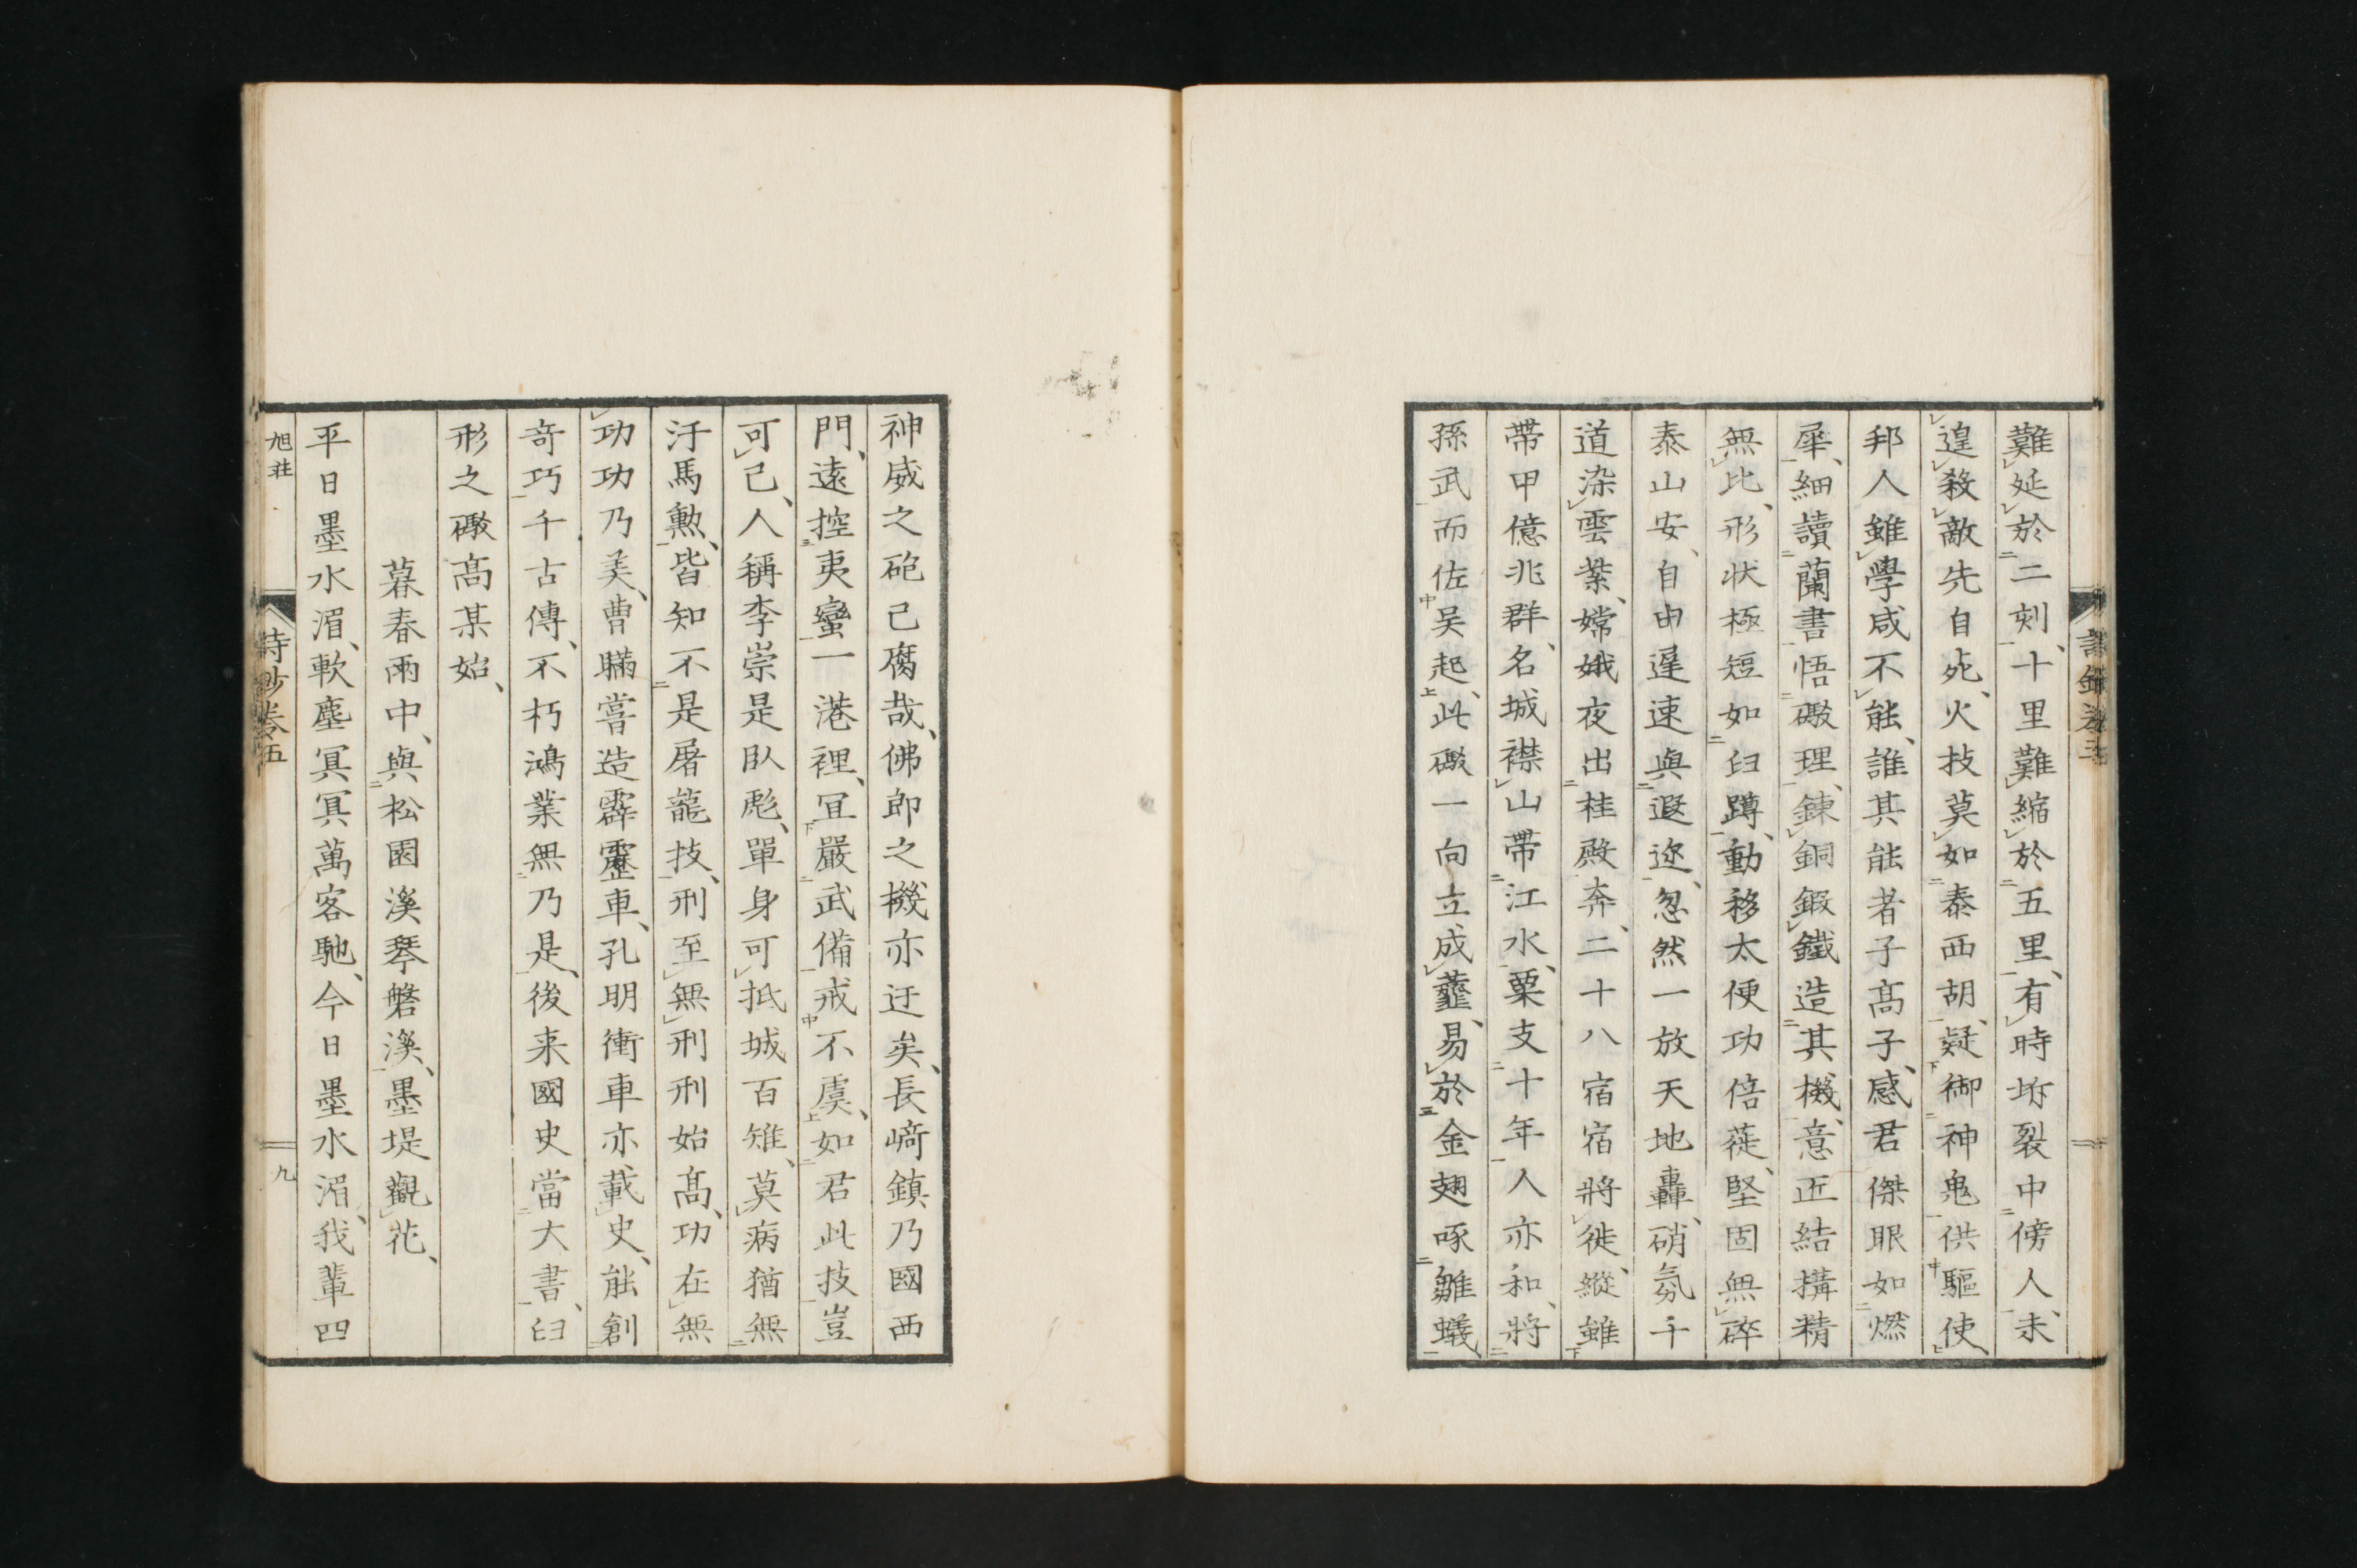 難延於二刻、十里難縮於五里、有時坼裂中傍人、未
遑殺敵先自死、火技莫如泰西胡、疑御神鬼供驅使、
邦人雖學咸不能、誰其能者子高子、感君傑眼如燃
犀、細讀蘭書悟礮理、鍊銅鍛鐵造其機、意匠結構精
無比、形狀極短如臼蹲、動移太便功倍蓰、堅固無碎
泰山安、自由遲速與遐迩、忽然一放天地轟、硝氛千
道染雲紫、嫦娥夜出桂殿奔、二十八宿宿將徙、縱雖
帶甲億兆群、名城襟山帶江水、粟支十年人亦和、將
孫武而佐吴起、此礮一向立成虀、易於金翅啄雛蟻
神威之砲已腐哉、佛郎之機亦迂矣、長﨑鎮乃國西
門、遠控夷蠻一港裡、冝嚴武備戒不虞、如君此技豈
可已、人稱李崇是臥彪、單身可抵城百雉、莫病猶無
汗馬勲、皆知不是屠龍技、刑至無刑刑始高、功在無
功功乃美、曹瞞嘗造霹靂車、孔明衝車亦載史、能創
奇巧千古傳、不朽鴻業無乃是、後来國史當大書、臼
形之礮高某始、
暮春雨中、與松園溪琴磐溪、墨堤觀花、
平日墨水湄、軟塵冥冥萬客馳、今日墨水湄、我輩四
旭荘
詩鈔卷五
九